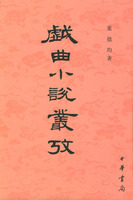 葉德均著
戲曲小說叢攷
中華書局